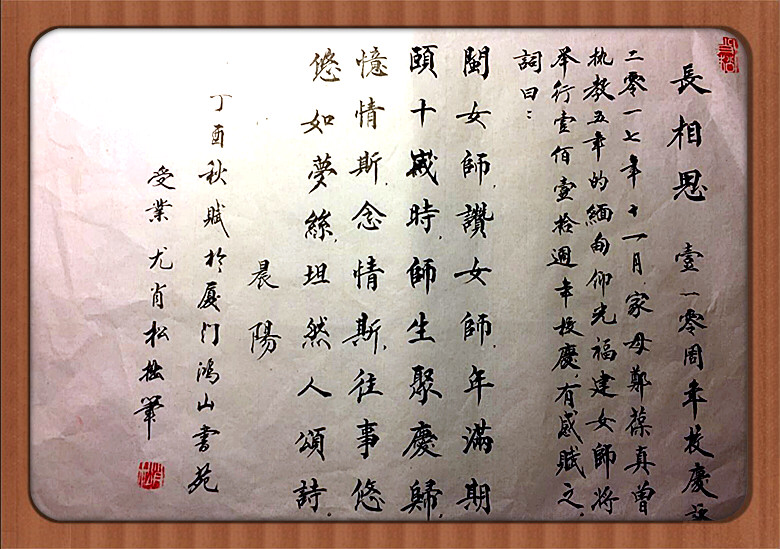 長相思　壹一零周年校慶
二零一七年十一月，家母鄭葆真曾
执教五年的緬甸仰光福建女師将
举行壹佰壹拾週年校慶，有感賦之，
詞曰：
閩女師，讚女師，年滿期
頤十感時，師生聚慶歸，
憶情斯，念情斯，往事悠
悠如夢絲，坦然人頌詩。
晨陽
丁酉秋賦於厦门鴻山書苑
受業尤肖松拙筆